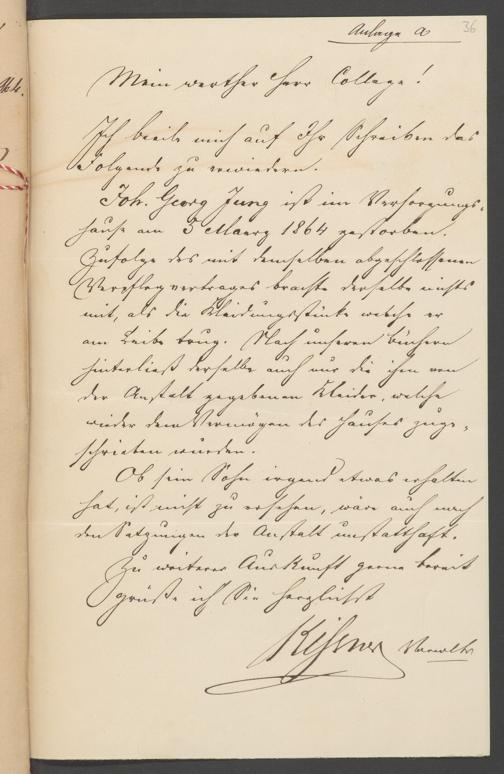 36
Anlage a
Mein werther Herr College!
Ich beeile mich auf Ihr Schreiben das
Folgende zu erwiedern.
Joh. Georg Jung ist im Versorgungs-
hause am 3 Maerz 1864 gestorben.
Zufolge des mit demselben abgeschlossenen
Verpflegvertrages brachte derselbe nichts
mit, als die Kleidungsstücke welche er
am Leibe trug. Nach unseren Büchern
hinterließ derselbe auch nur die ihm von
der Anstalt gegebenen Kleider, welche
wieder dem Vermögen des Hauses zuge-
schrieben wurden.
Ob sein Sohn irgend etwas erhalten
hat, ist nicht zu ersehen, wäre auch nach
den Satzungen der Anstalt unstatthaft.
Zu weiterer Auskunft gerne bereit
grüße ich Sie herzlichst
Verwalter